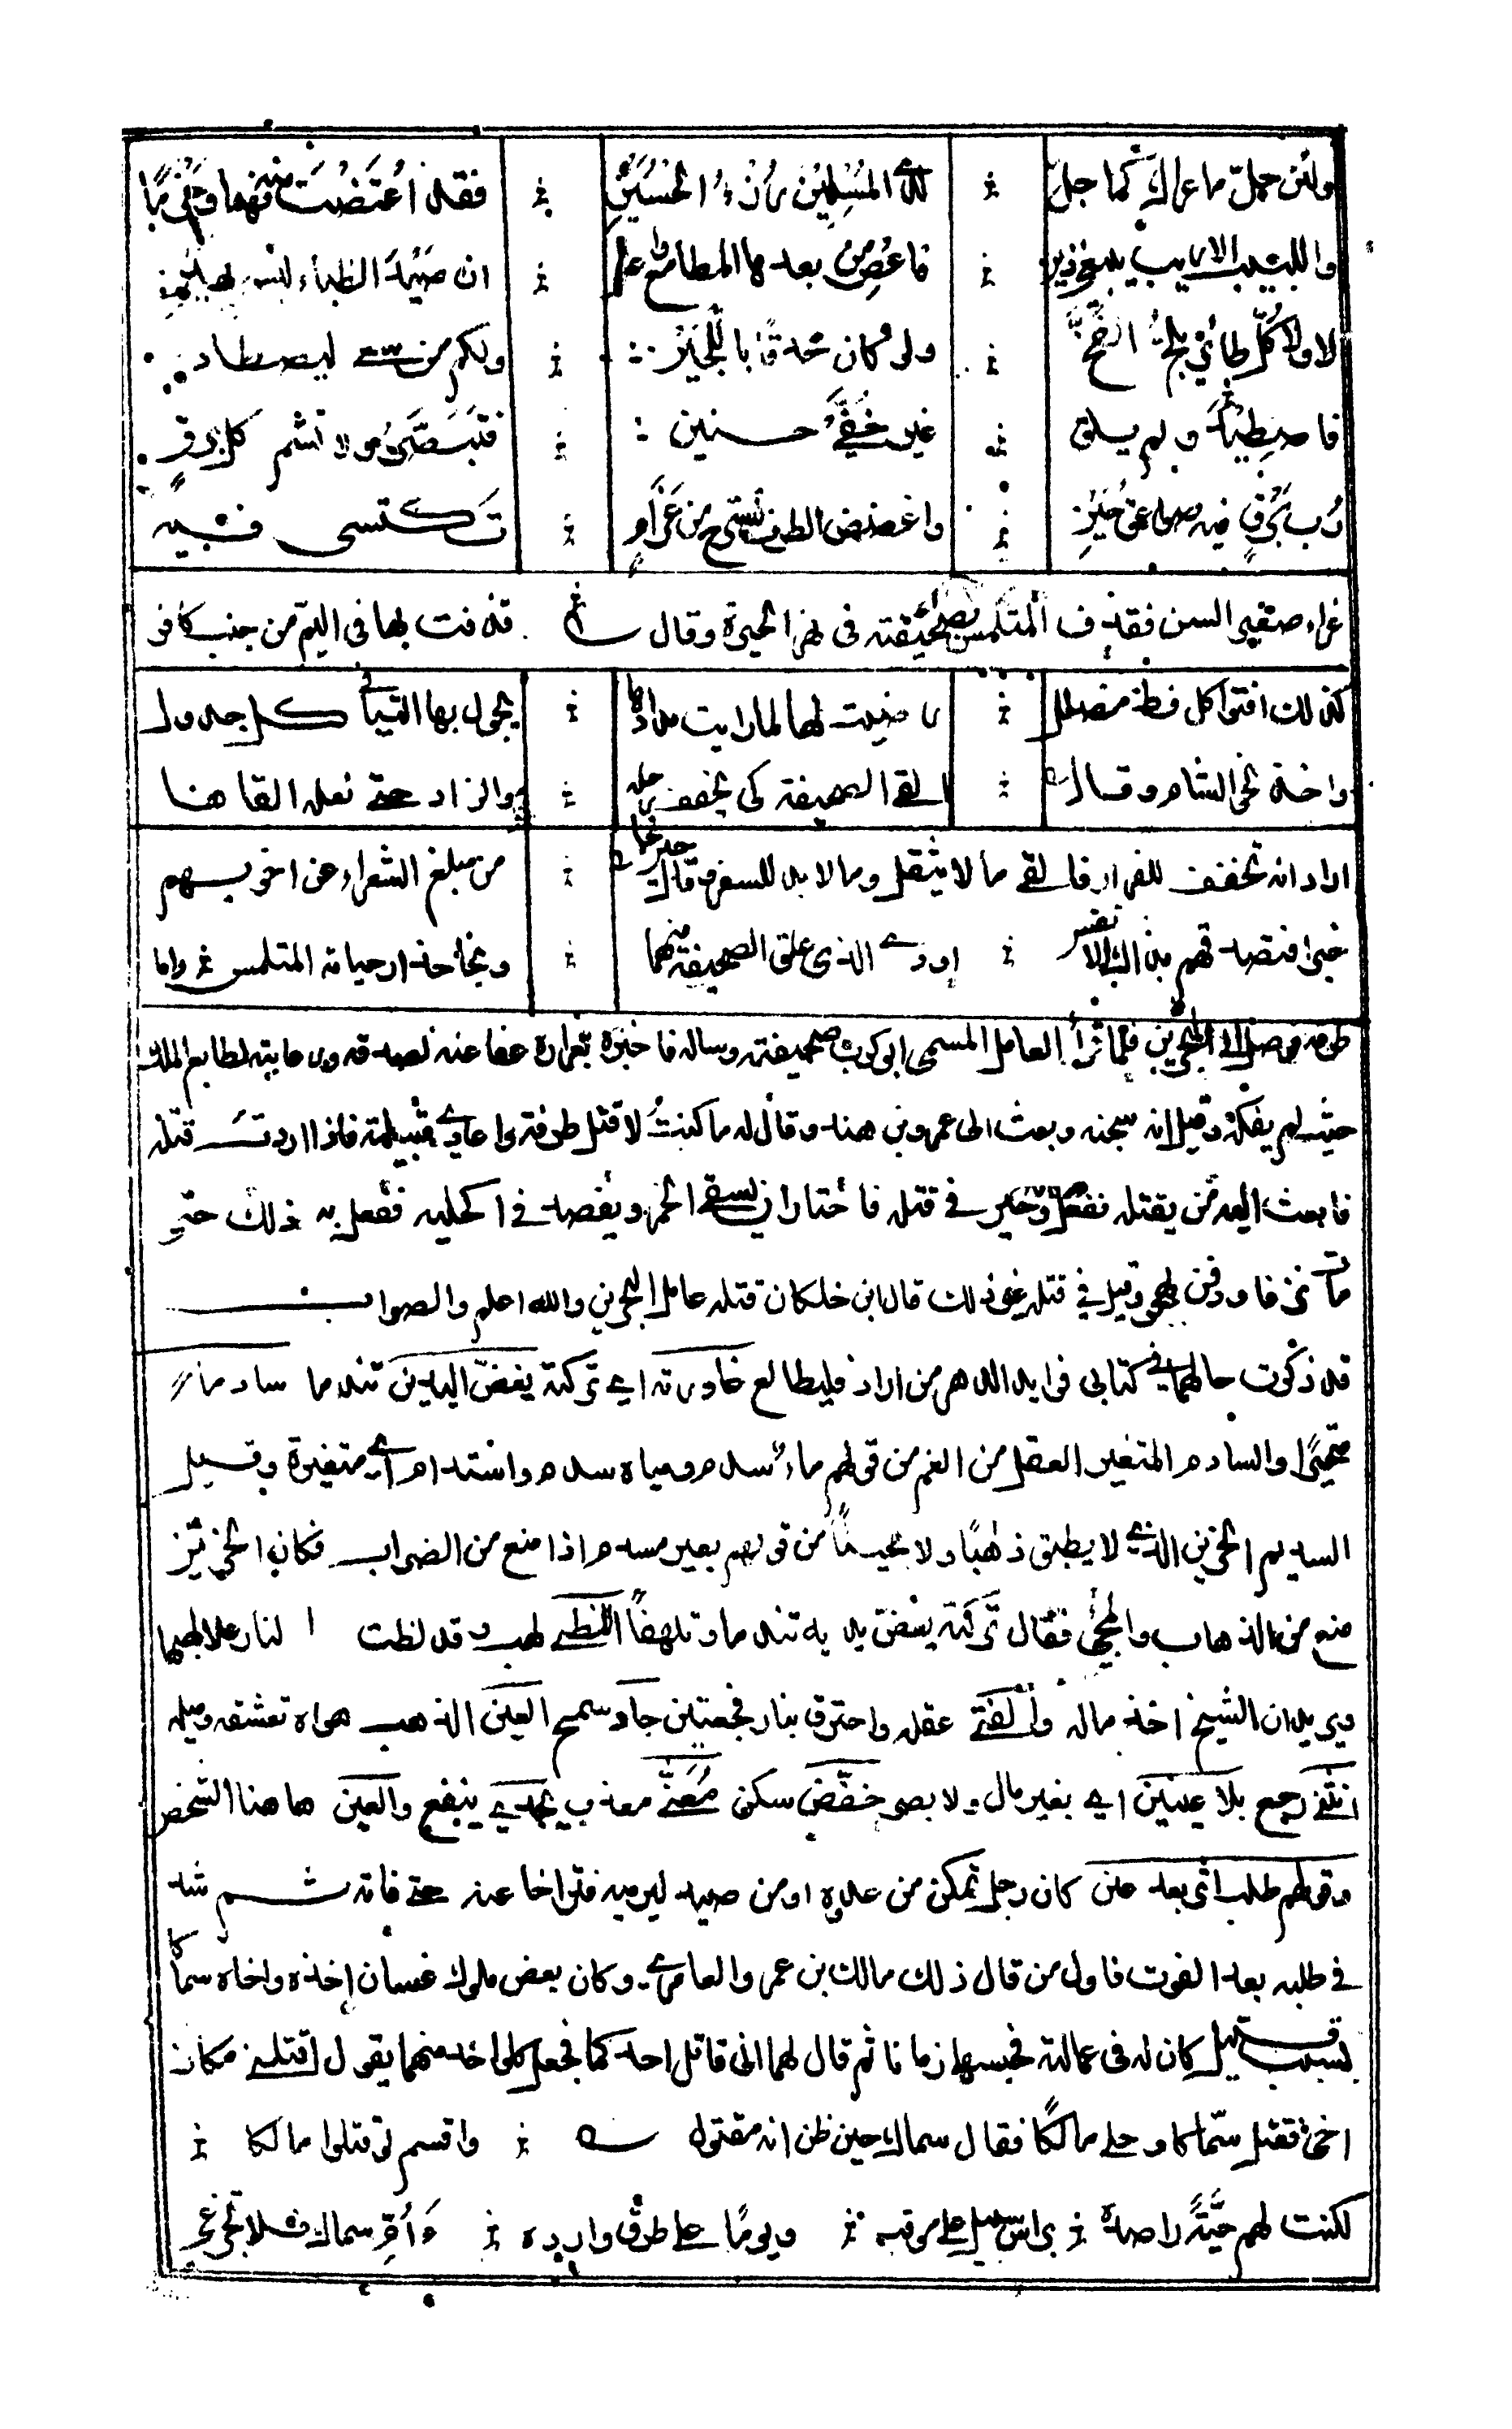 ولئن جلّ ما عراك كما جلّ ⁘ لدى المسلمين رزء الحسين ⁘ فقد اعتضت منه فهما وحزما
واللبيب الاريب يبغي ذين ⁘ فاعص من بعدها المطامع واعلم ⁘ ان صيد الظباء ليس بهين
لا ولا كل طائر يلج الفخ ⁘ ولو كان محدقا باللجين ⁘ ولكم من سعى ليصطاد
فاصطيد ولم يلق ⁘ غير خفي حنين ⁘ فتبصر ولا تشم كل برق
رب برق فيه صواعق حين ⁘ واغضض الطرف تسترح من غرام ⁘ تكتسى فيه
غراء صغير السن فقذف المتلمس بصحيفته في نهر الحيرة وقال قذفت بها في اليم من جنب كافر
كذلك افنوا كل قط مضلل ⁘ رضيت لها لما رايت مدادها ⁘ يجول بها التيار كل جدول
واخذ نحو الشام وقال ⁘ القى الصحيفة كي يخفف رحله ⁘ والزاد حتى نعله القاها
اراد انه تخفف للفرار فالقى ما لا يثقل وما لا بد للسفر وقال ⁘ من مبلغ الشعراء عن اخويهم
خبرا فتصدقهم بذاك الانفس ⁘ اودى الذي علق الصحيفة منهما ⁘ ونجا حذار حياته المتلمس واما
طرفة فوصل الى البحرين فلما قرأ العامل المسمى ابو كرب صحيفته وساله فاخبره بقراره عفا عنه لصدقه ورعايته لطابع الملك
حيث لم يفكه وقيل انه سجنه وبعث الى عمرو بن هند وقال له ما كنت لاقتل طرفة واعادي قبيلته فاذا اردت قتله
فابعث اليه من يقتله ففعل وخير في قتله فاختار ان يسقى الخمر ويفصد في اكحليه ففعل به ذلك حتى
مات نزفا ودفن بهجر وقيل في قتله غير ذلك قال ابن خلكان قتله عامل البحرين والله اعلم والصواب
قد ذكرت حالهما في كتابي فرايد الدهر من اراد فليطالع غادرته اي تركته يغض اليدين تندما سادما
متحيرا والسادم المتغير العقل من الغم من قولهم ماء سدم ومياه سدم واسدام اي متغيرة وقيل
السديم الحزين الذي لا يطيق ذهابا ولا مجيئا من قولهم بعير مسدم اذا منع من الضراب فكان الحزين
منع من الذهاب والمجئ فقال تركته يغض يديه تندما وتلهفا اللظى لهب وقد لظت النار علا لهبها
ويريد ان الشيخ اخذ ماله والفتى عقله واحترق بنار فجعتين جاد سمح العين الذهب هواه تعشقه وميله
انثنى رجع بلا عينين اي بغير مال ولا بصر خفض سكن معنى معذب يجدي ينفع والعين هاهنا الشخص
وقولهم طلب اثرا بعد عين كان رجل تمكن من عدوه او من صيد ليرميه فتراخا عنه حتى فاته ثم شد
في طلبه بعد الفوت فاول من قال ذلك مالك بن عمرو العامري وكان بعض ملوك غسان اخذه واخاه سماكا
بسبب قتيل كان له في عمالته فحبسهما زمانا ثم قال لهما اني قاتل احدكما فجعل كل واحد منهما يقول اقتلني مكان
اخي فقتل سماكا وخلى مالكا فقال سماك حين ظن انه مقتول ⁘ واقسم لو قتلوا مالكا ⁘
لكنت لهم حية راصدة ⁘ براس سبيل على مرقب ⁘ ويوما على طرق وارده ⁘ ءأم سماك فلا تجزعي